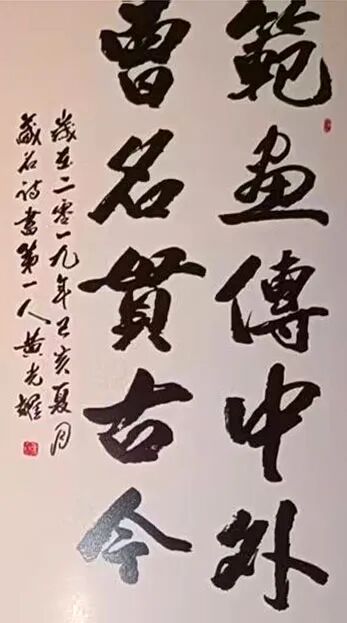 範畫傳中外
曾名貫古今
歲在二零一九年己亥夏月
藏名詩書第一人黃光耀